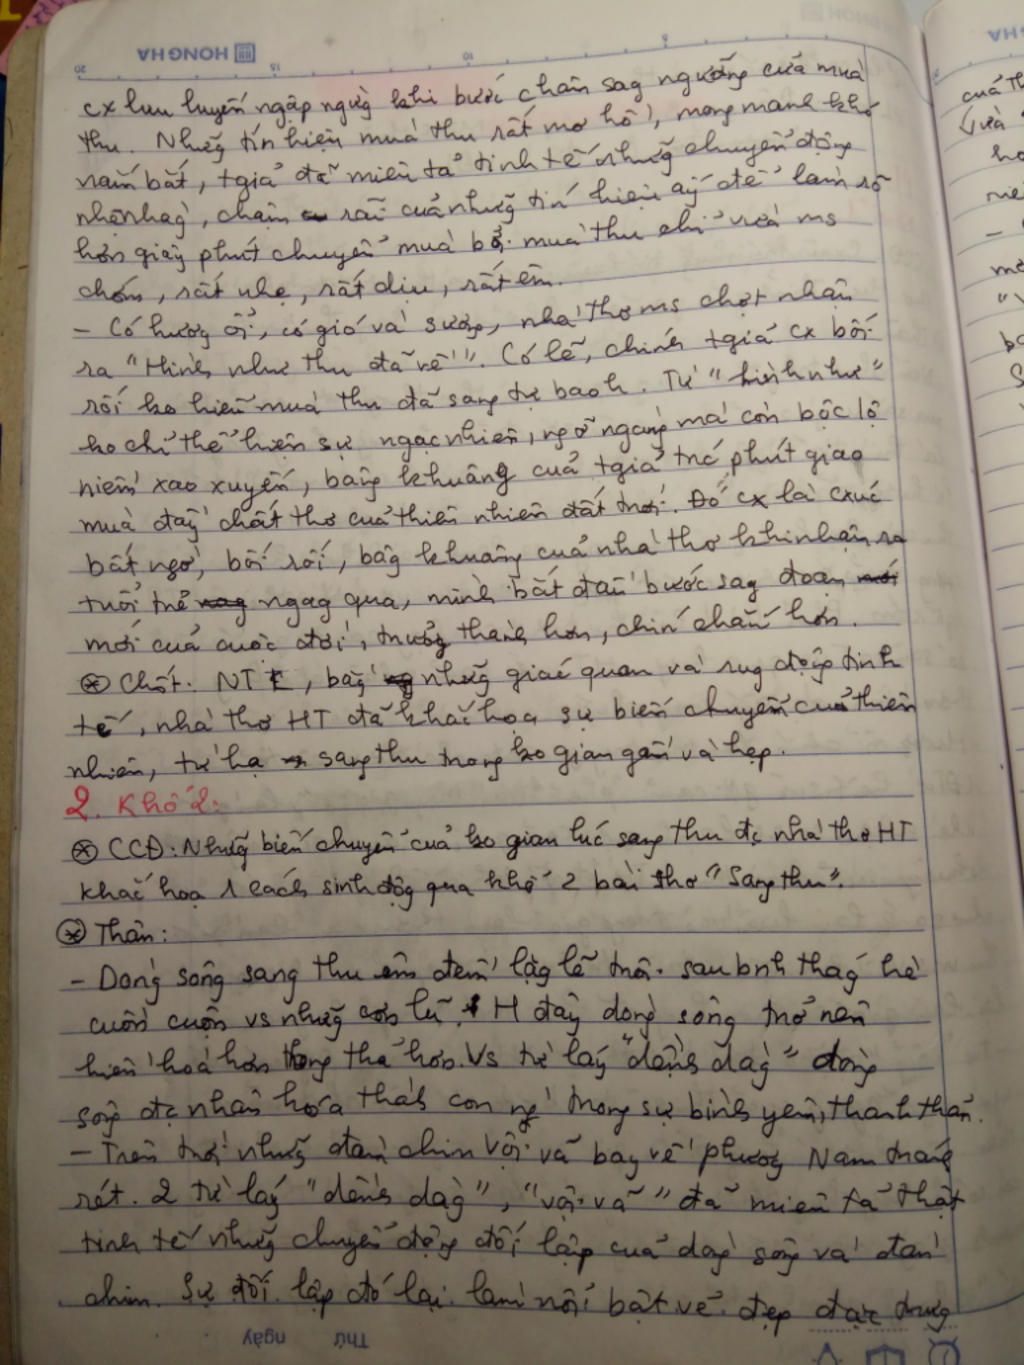 HONG HA
cx lưu luyến ngập ngừg khi bước chân sag ngưỡng cửa mùa
thu. Nhữg tín hiệu mùa thu rất mơ hồ, mong manh khó
nắm bắt, tgiả đã miêu tả tinh tế nhữg chuyển động
nhẹ nhàg, chậm rãi của nhữg tín hiệu ấy để làm rõ
hơn giây phút chuyển mùa bởi mùa thu chỉ vừa ms
chớm, rất nhẹ, rất dịu, rất êm.
- Có hương ổi, có gió và sương, nhà thơ ms chợt nhận
ra "Hình như thu đã về". Có lẽ, chính tgiả cx bối
rối ko hiểu mùa thu đã sang tự bao h. Từ "hình như"
ko chỉ thể hiện sự ngạc nhiên, ngỡ ngàng mà còn bộc lộ
niềm xao xuyến, bâng khuâng của tgiả trc phút giao
mùa đầy chất thơ của thiên nhiên đất trời. Đó cx là cxúc
bất ngờ, bối rối, bâg khuâng của nhà thơ khi nhận ra
tuổi trẻ ngag qua, mình bắt đầu bước sag đoạn
mới của cuộc đời, trưởng thành hơn, chín chắn hơn.
* Chốt: NTT, bằg nhữg giác quan và rug động tinh
tế, nhà thơ HT đã khắc họa sự biến chuyển của thiên
nhiên, từ hạ sang thu trong ko gian gần và hẹp.
2. Khổ 2:
* CCĐ: Nhữg biến chuyển của ko gian lúc sang thu đc nhà thơ HT
khắc họa 1 cách sinh độg qua khổ 2 bài thơ "Sang thu".
* Thân:
- Dòng sông sang thu êm đềm lặg lẽ trôi sau bnh thág hè
cuồn cuộn vs nhữg cơn lũ. H đây dòng sông trở nên
hiền hoà hơn thong thả hơn. Vs từ láy "dềnh dàg" dòng
sông đc nhân hóa thàh con ng' trong sự bình yên, thanh thản.
- Trên trời nhữg đàn chim vội vã bay về phương Nam tránh
rét. 2 từ láy "dềnh dàg", "vội vã" đã miêu tả thật
tinh tế nhữg chuyển động đối lập của dòng sông và đàn
chim. Sự đối lập đó lại làm nổi bật vẻ đẹp đặc trưng
Thứ ngày